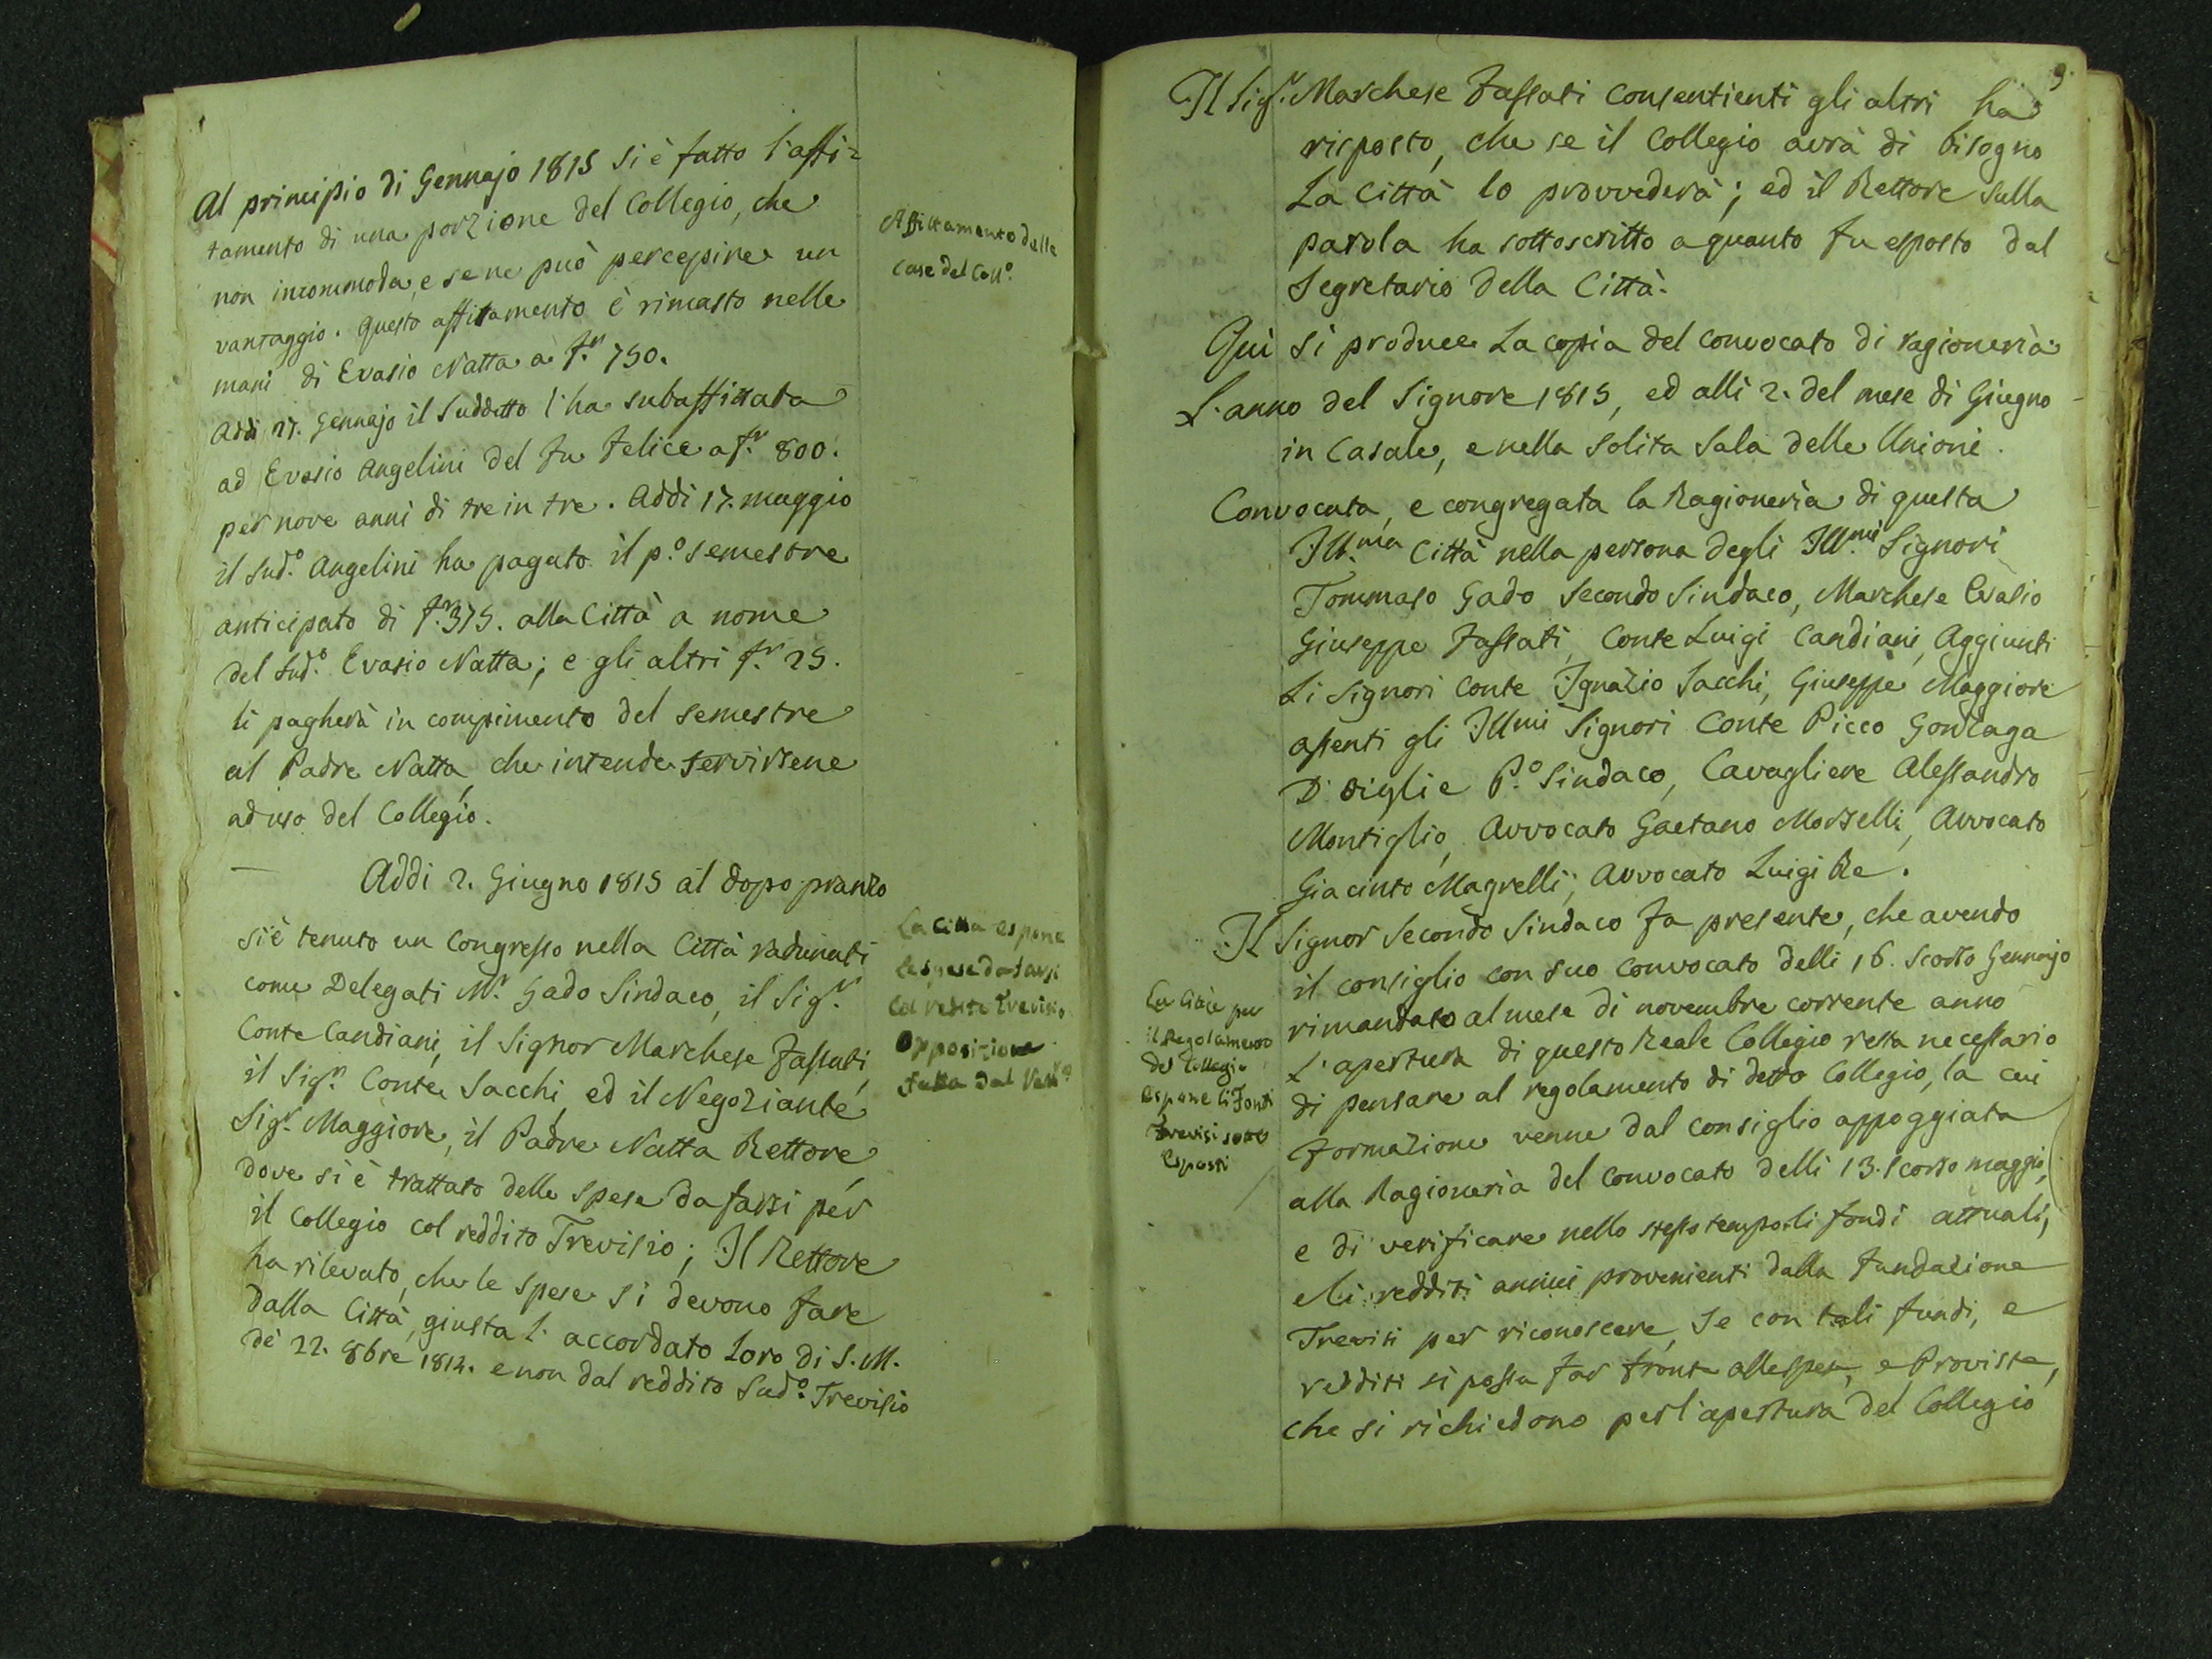 Al principio di Gennajo 1815 si è fatto l'affi=
tamento di una porzione del Collegio, che
non incommoda, e se ne può percepire un
vantaggio. Questo affitamento è rimasto nelle
mani di Evasio Natta a f.n 750.
Addi 27. Gennajo il Suddetto l'ha subaffittata
ad Evasio Angelini del fu Felice a f.r 800.
per nove anni di tre in tre. Addi 17. maggio
il Sud.o Angelini ha pagato il p.o semestre
anticipato di f.r 375. alla Città a nome
del Sud.o Evasio Natta; e gli altri f.r 25.
li pagherà in compimento del semestre
al Padre Natta, che intende servirsene
ad uso del Collegio.
Affittamento delle
Case del Coll.o
Addi 2. Giugno 1815 al dopo pranzo
si è tenuto un Congresso nella Città radunati
come Delegati M.r Gado Sindaco, il Sig.r
Conte Candiani, il Signor Marchese Fassati,
il Sig.r Conte Sacchi, ed il Negoziante
Sig.r Maggiore, il Padre Natta Rettore,
dove si è trattato delle spese da farsi per
il Collegio col reddito Trevisio; Il Rettore
ha rilevato, che le spese si devono fare
dalla Città, giusta l'accordato loro di S. M.
de 22. 8bre 1814. e non dal reddito Sud.o Trevisio
La Città espone
le spese da farsi
col redito Trevisio
Opposizione
fatta dal
9.
Il Sig.r Marchese Fassati consentienti gli altri ha
risposto, che se il Collegio avrà di bisogno
La Città lo provvederà; ed il Rettore sulla
parola ha sottoscritto a quanto fu esposto dal
Segretario della Città.
Qui si produce la copia del convocato di ragioneria
L'anno del Signore 1815, ed alli 2. del mese di Giugno
in Casale, e nella solita Sala delle Unioni.
Convocata, e congregata la Ragioneria di questa
Ill.ma Città nella persona degli Ill.mi Signori
Tommaso Gado Secondo Sindaco, Marchese Evasio
Giuseppe Fassati, Conte Luigi Candiani, Aggiunti
Li Signori Conte Ignazio Sacchi, Giuseppe Maggiore
assenti gli Ill.mi Signori Conte Picco Gonzaga
D'Uviglie P.o Sindaco, Cavagliere Alessandro
Montiglio, Avvocato Gaetano Morselli, Avvocato
Giacinto Magrelli, Avvocato Luigi Re.
Il Signor Secondo Sindaco fa presente, che avendo
il consiglio con suo convocato delli 16. scorso Gennajo
rimandato al mese di novembre corrente anno
L'apertura di questo Reale Collegio resta necessario
di pensare al regolamento di detto Collegio, la cui
formazione venne dal consiglio appoggiata
alla Ragioneria del convocato delli 13. scorso maggio,
e di verificare nello stesso tempo li fondi attuali,
e li redditi annui provenienti dalla fundazione
Trevisi per riconoscere, se con tali fundi, e
redditi si possa far fronte alle spese, e Proviste,
che si richiedono per l'apertura del Collegio
La Città per
il Regolamento
del Collegio
espone li Fonti
Trevisi sotto
esposti